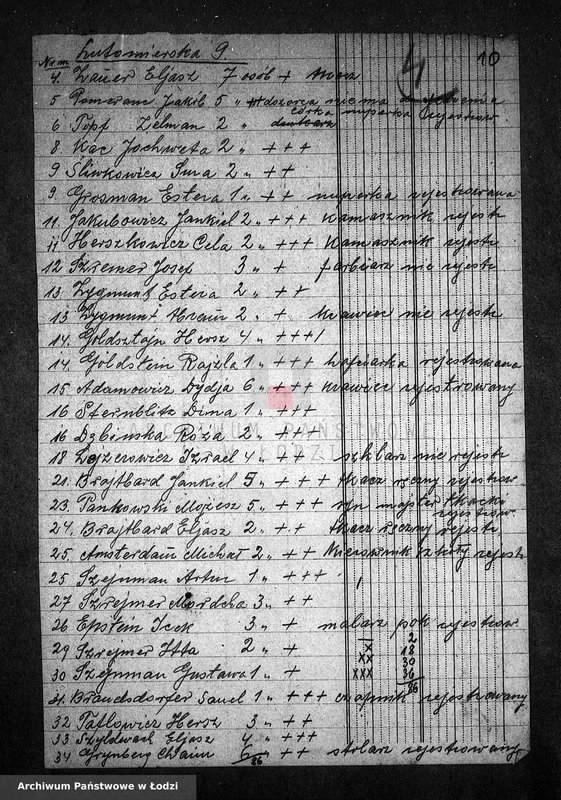 Num Lutomierska 9 10
4. Zauer Eljasz 7 osób +
5 Pomeranc Jakób 5 „ dozorca nie ma
6 Topf Zelman 2 „ córka nuperka rejestrow
8 Kac Jochweta 2 „ +++
9 Śliwkowicz Sura 2 „ ++
9. Grosman Estera 1 „ ++ nuperka rejestrowana
11. Jakubowicz Jankiel 2 „ +++ kamasznik rejestr
11 Herszkowicz Cela 2 „ +++ Kamasznik rejestr
12 Szremer Josef 3 „ + farbiarz nie rejestr
13 Zygmunt Estera 2 „ ++
13 Zygmunt 2 „ + Krawiec nie rejestr
14. Goldsztajn Hersz 4 „ +++/
14. Goldstein Rajzla 1 „ +++ rejestrowana
15 Adamowicz Dydja 6 „ +++ krawiec rejestrowany
16 Sternblitz Dina 1 „ +++
16 Dąbinska Róża 2 „ +++
18 Lajzerowicz Izrael 4 „ ++ szklarz nie rejestr
21. Brajtbard Jankiel 5 „ +++ tkacz ręczny rejestrow
23. Pankowski Mojżesz 5 „ +++ syn majster tkacki rejestrow
24. Brajtbard Eljasz 2 „ ++ tkacz ręczny rejestr
25. Amsterdam Michał 2 „ ++ Kierownik szkoły rejestr
25 Szejnman Artur 1 „ +++
27 Szrejmer Mordcha 3 „ ++
26 Epstein Icek 3 „ + malarz pok rejestrow
29 Szrejmer Itta 2 „ + — 2
x 18
30 Szejnman Gustawa 1 „ + xx 30
xxx 36
86
31. Brandsdorfer Saul 1 „ +++ czapnik rejestrowany
32 Patlowicz Hersz 3 „ ++
33 Szyldwach Eljasz 4 „ +++
34 Grynberg Chaim 6 „ ++ stolarz rejestrowany
86
ARCHIWUM PAŃSTWOWE
W ŁODZI
Archiwum Państwowe w Łodzi